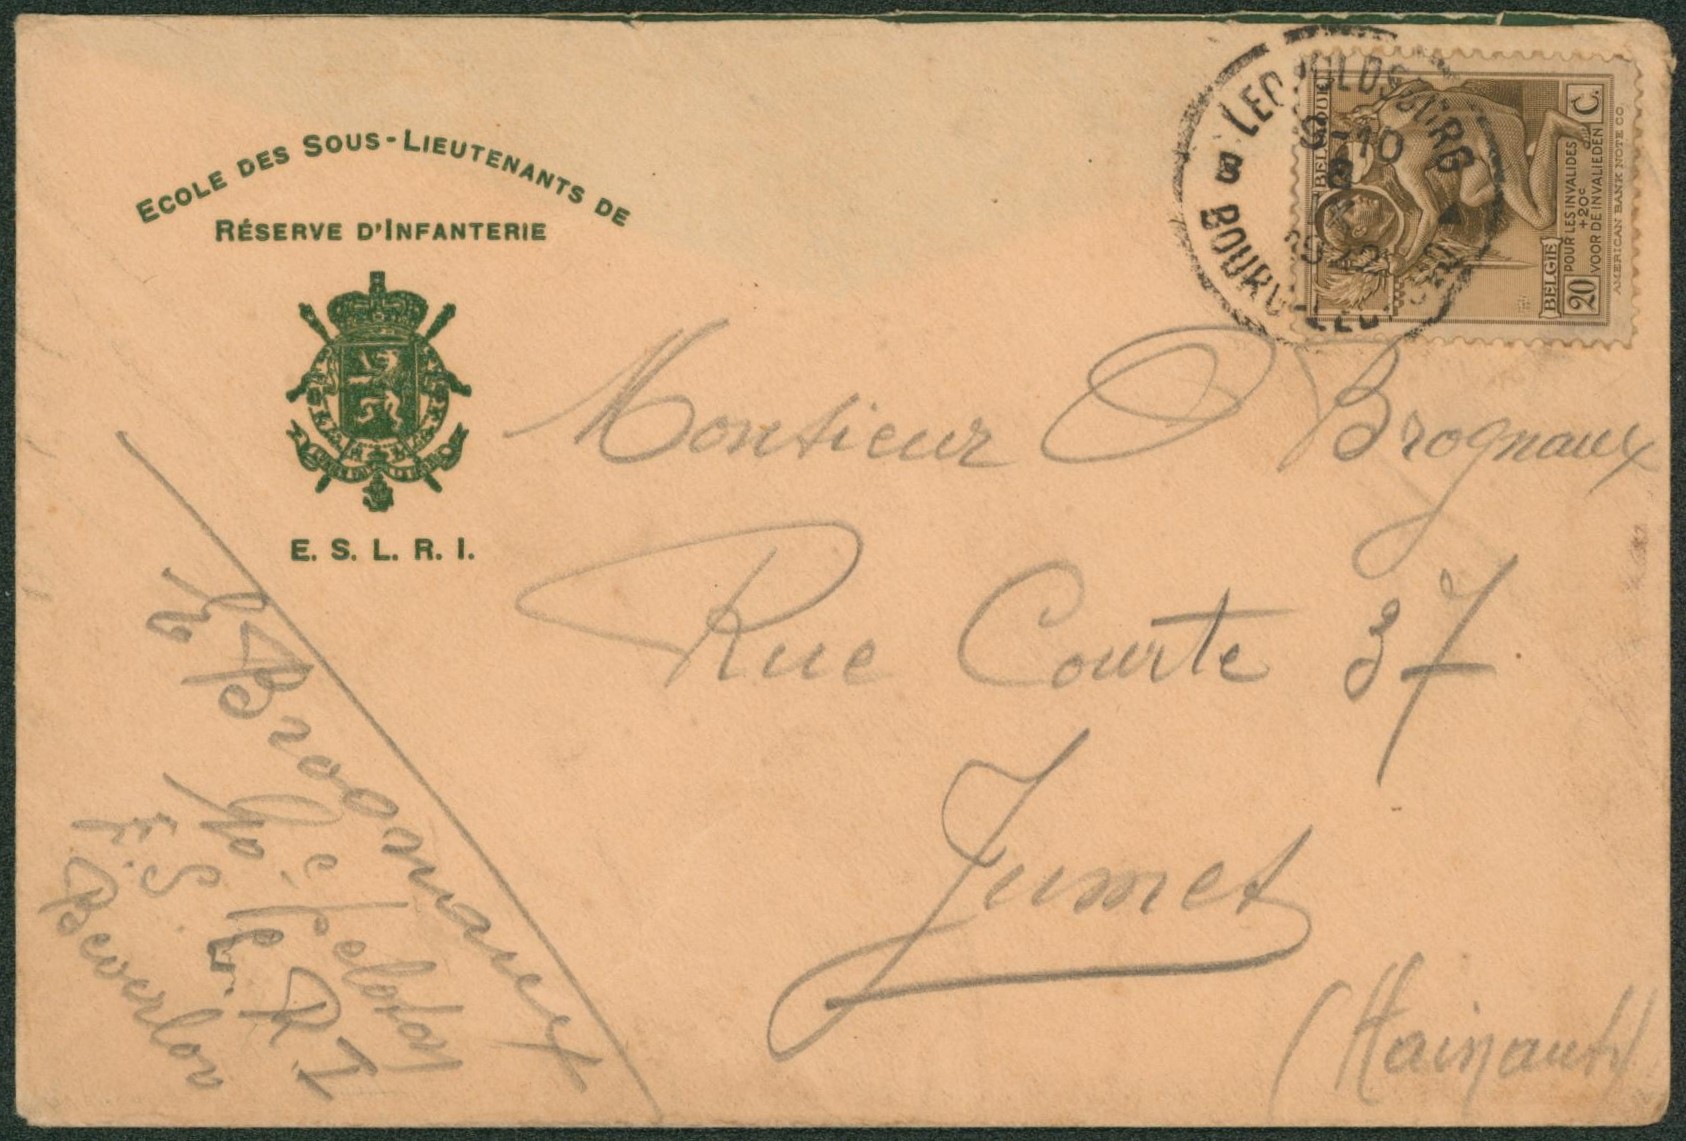 ECOLE DES SOUS-LIEUTENANTS DE
RÉSERVE D'INFANTERIE
E. S. L. R. I.
LEOPOLDSBURG
9-10
8
1922
BOURG-LEOPOLD
BELGIQUE
BELGIË
20 C.
POUR LES INVALIDES
+20c
VOOR DE INVALIEDEN
AMERICAN BANK NOTE CO.
Monsieur O Brognaux
Rue Courte 37
Jumet
(Hainaut)
Brognaux
peloton
E.S.L.R.I
Beverloo